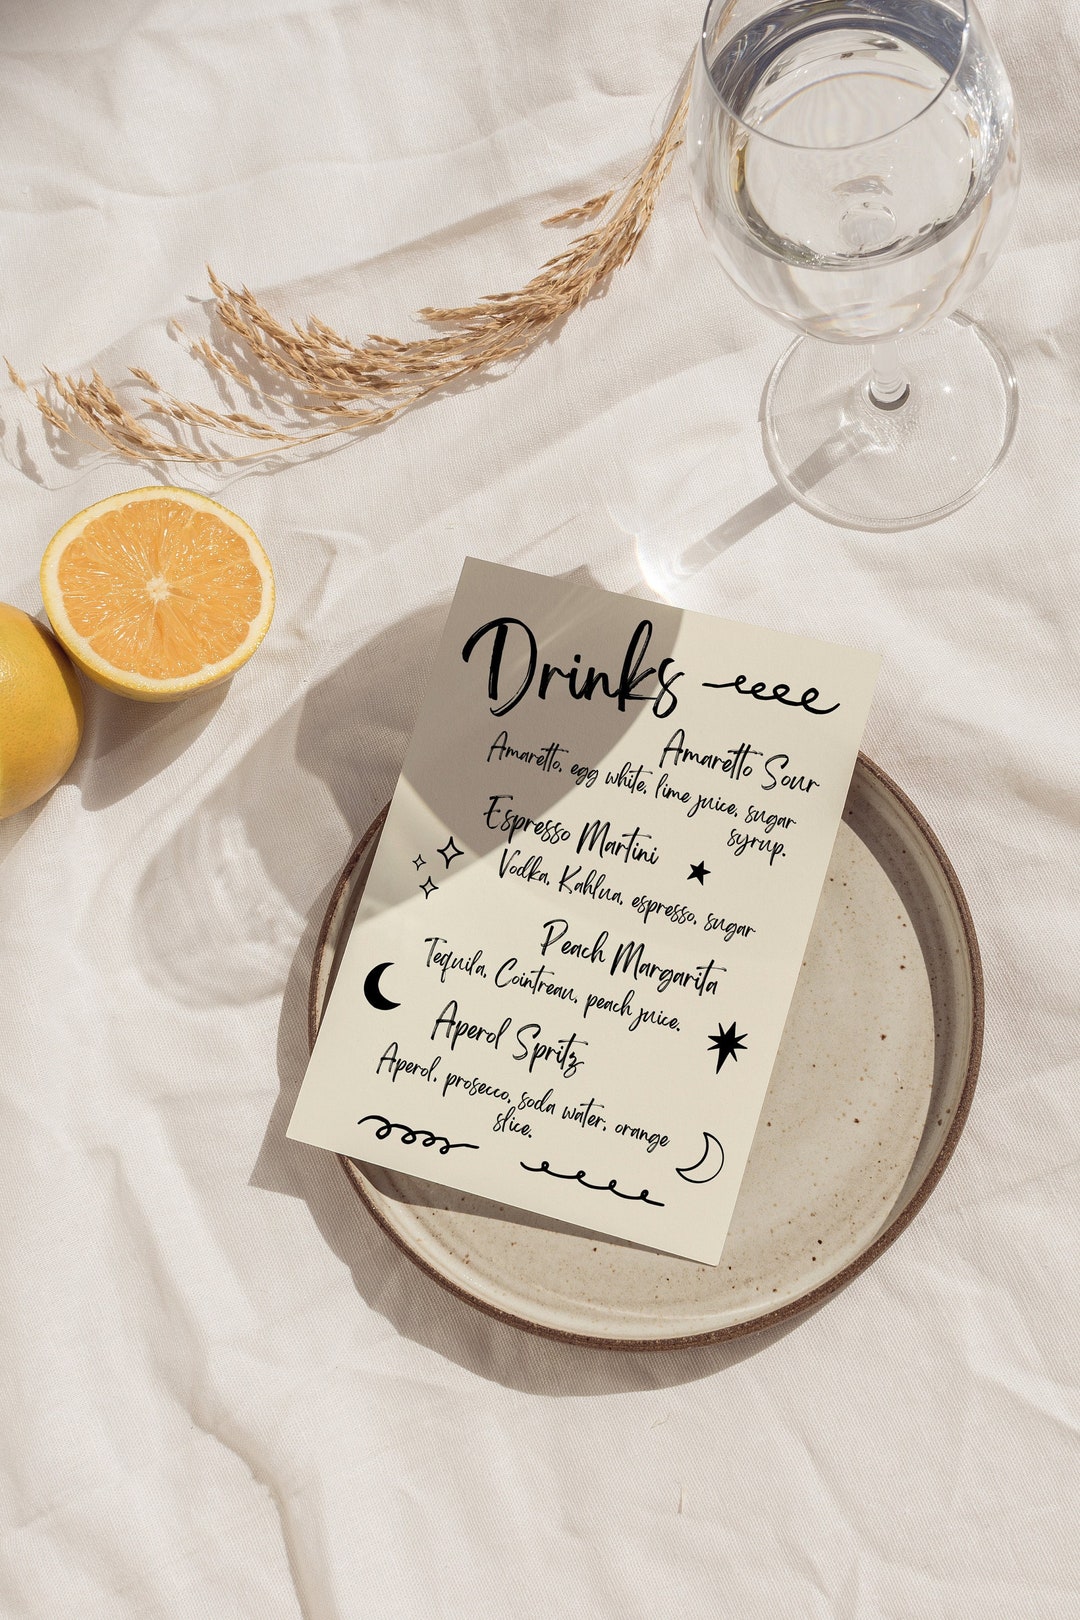 Drinks
Amaretto Sour
Amaretto, egg white, lime juice, sugar
syrup.
Espresso Martini
Vodka, Kahlua, espresso, sugar
Peach Margarita
Tequila, Cointreau, peach juice.
Aperol Spritz
Aperol, prosecco, soda water, orange
slice.